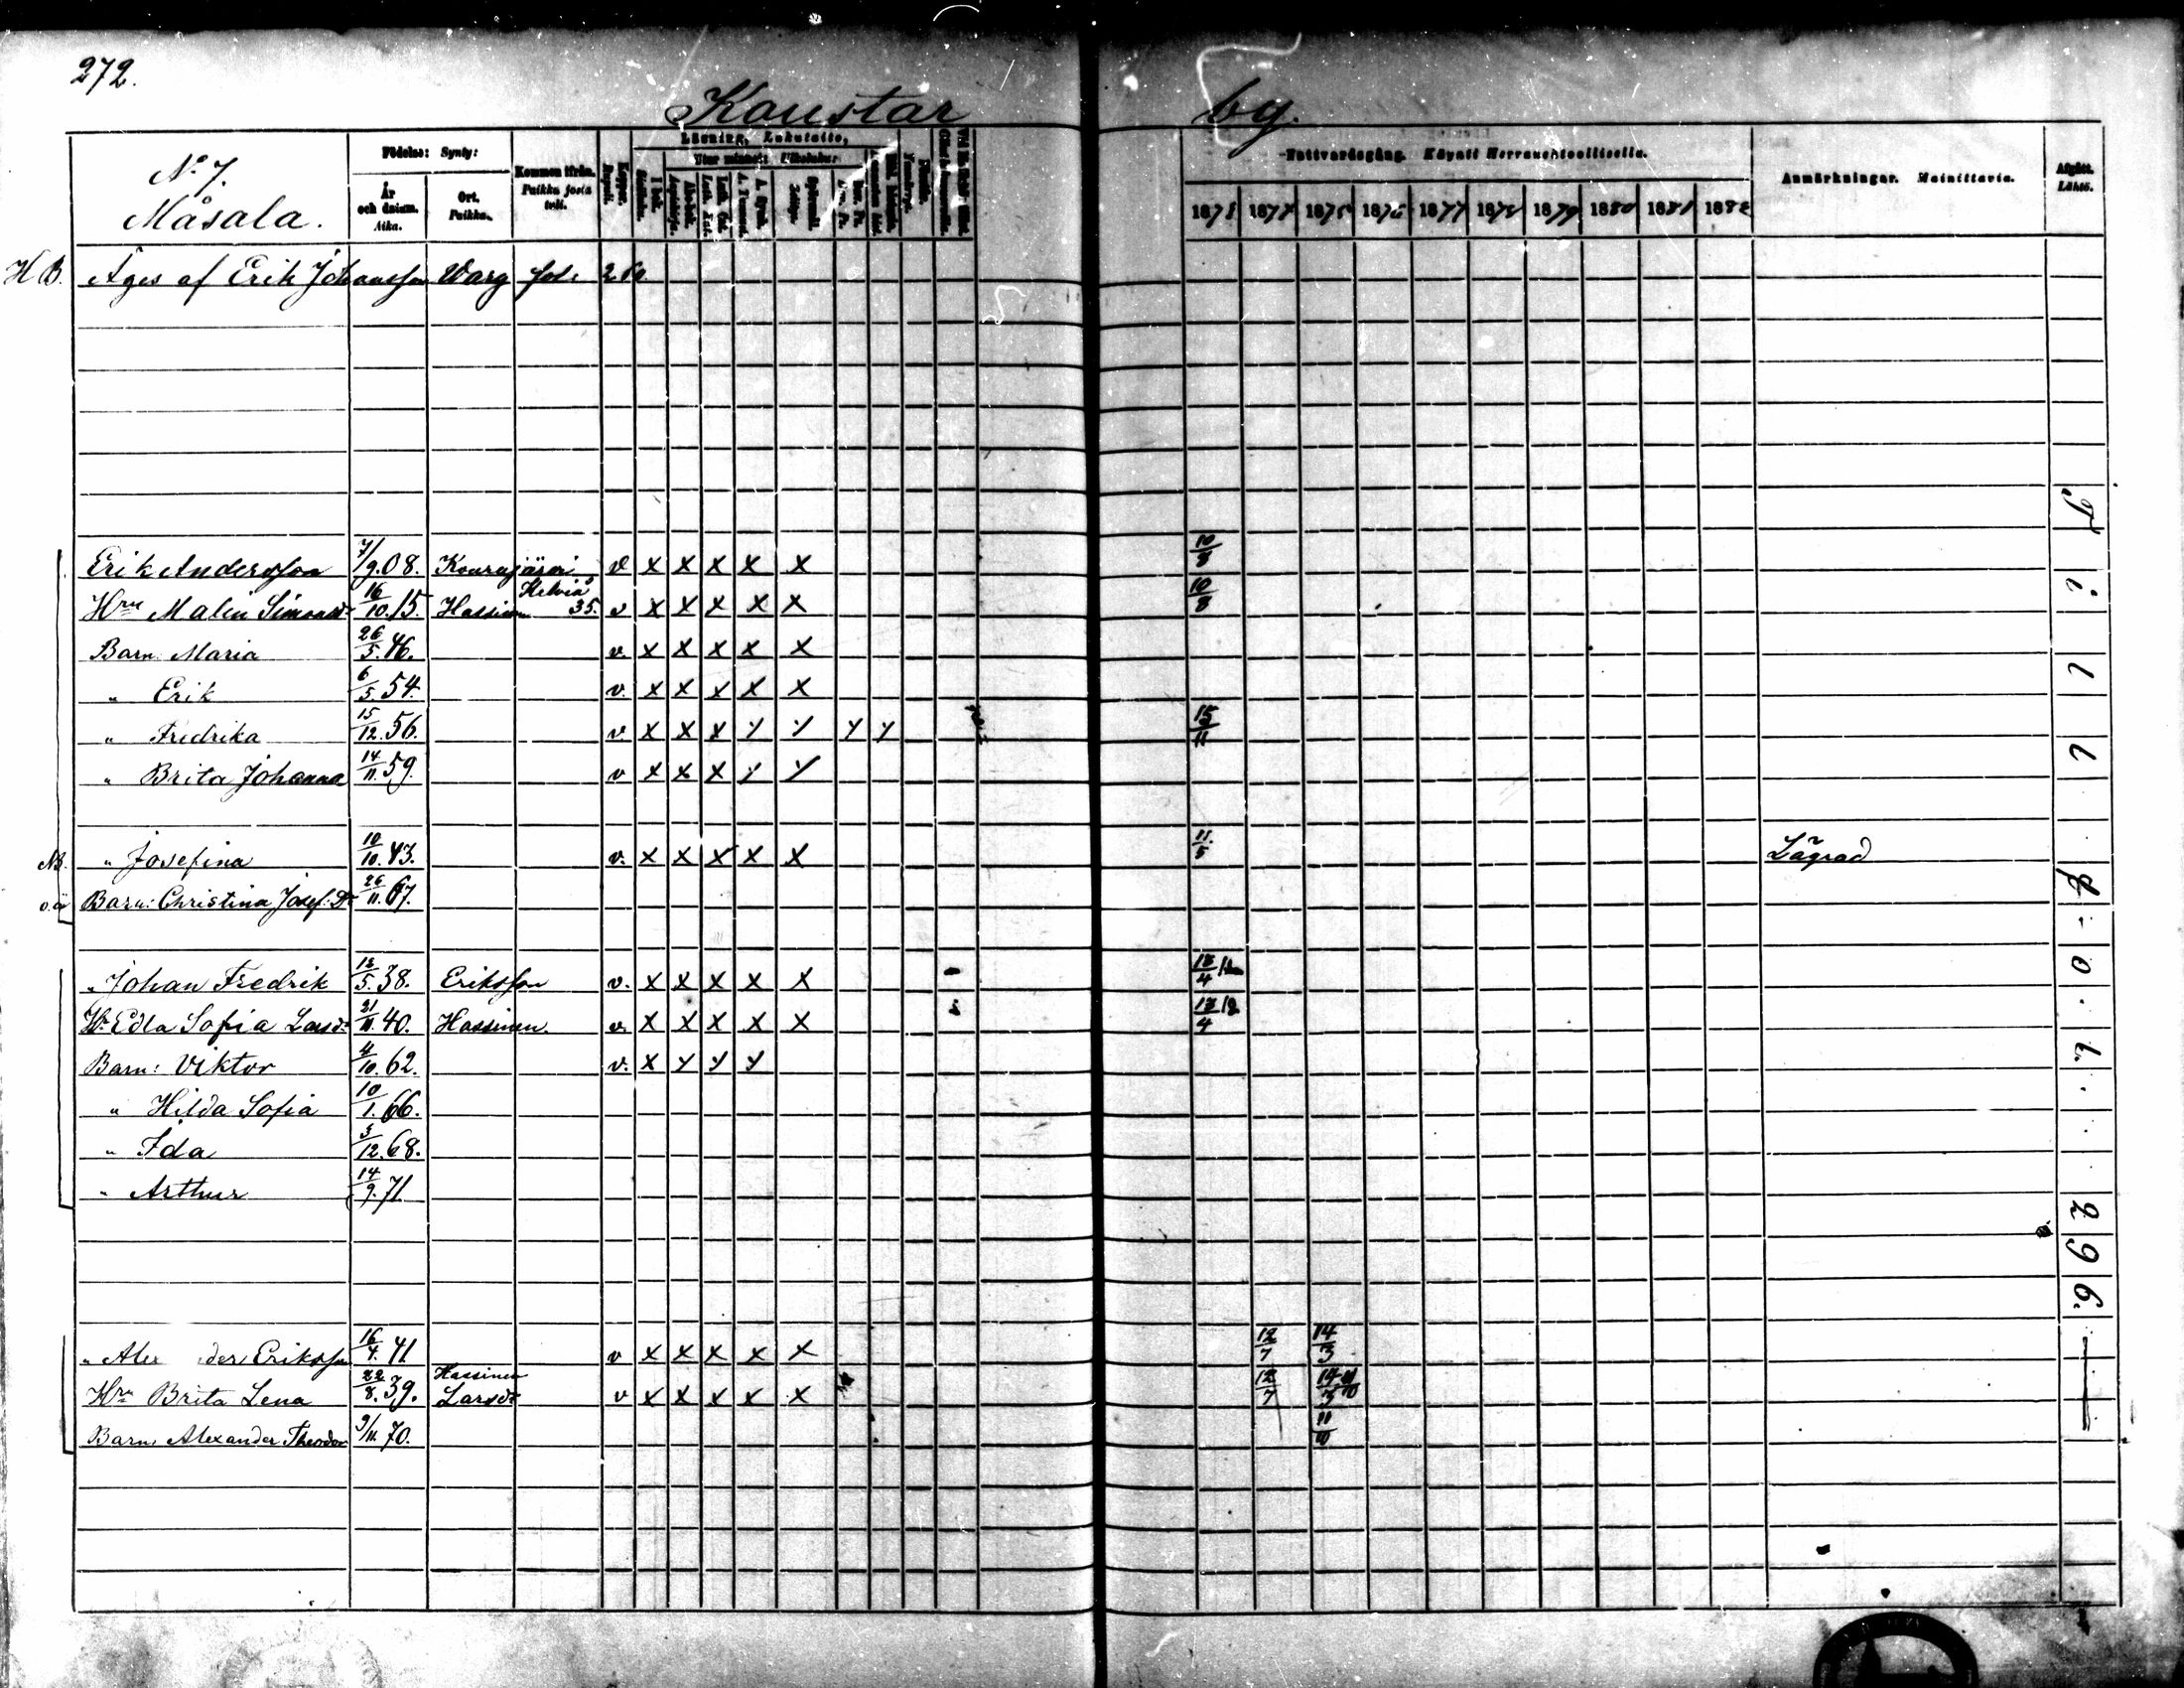 272.
Koustar by.
No 7.
Måsala.
Födelse: Synty:
År och datum. Aika.
Ort. Paikka.
Kommen ifrån. Paikka josta tuli.
Koppor. Rupuli.
Läsning, Lukutaito,
I bok.
Utur minnet: Ulkolukur
Nattvardsgång. Käynti Herranehtoollisella.
1873 1874 1875 1876 1877 1878 1879 1880 1881 1882
Anmärkningar. Mainittavia.
Afgått. Lähtö.
H B. Äges af Erik Johansson Warg fol: 260.
Erik Andersson 7/9.08. Kourajärvi v x x x x x 10/8
Hru Malin Simonsdr 16/10.15. Hassinen Kelviå 35. v x x x x x 10/8
Barn: Maria 26/5.46. v. x x x x x
" Erik 6/5.54. v. x x x x x
" Fredrika 15/12.56. v. x x x y y y y 15/11
" Brita Johanna 14/11.59. v x x x y y
NB. " Josefina 10/10.43. v. x x x x x 11/5 Lägrad
o.ä Barn: Christina Josef: Dr 26/11.67.
" Johan Fredrik 12/5.38. Eriksson v. x x x x x
Hr Edla Sofia Larsdr 21/11.40. Hassinen. v. x x x x x
Barn: Viktor 4/10.62. v. x y y y
" Hilda Sofia 10/1.66.
" Ida 3/12.68.
" Arthur 14/9.71
" Alex der Eriksson 16/4.41 v x x x x x 12/7 14/3
Hru Brita Lena 22/8.39. Hassinen Larsdr v x x x x x 12/7 14/3 11/10
Barn: Alexander Theodor 9/11.70. 11/10
Till
296.